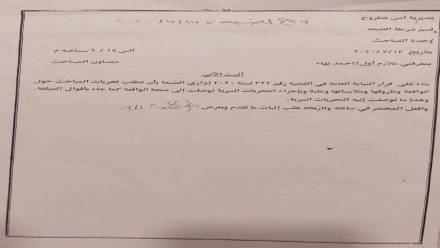 مديرية أمن مطروح
قسم شرطة الضبعة
وحدة المباحث
بتاريخ ٢٠٢٠/٧/١٣ الساعة ٦/١٥ م
بمعرفتي ملازم أول/ احمد بهاء معاون المباحث
أثبت الآتي
بناء على قرار النيابة العامة في القضية رقم ٣٢٢ لسنة ٢٠٢٠ إداري الضبعة بأن تطلب تحريات المباحث حول
الواقعة وظروفها وملابساتها وعليه وبإجراء التحريات السرية توصلت إلى صحة الواقعة كما جاء بأقوال المبلغة.
وهذا ما توصلت إليه التحريات السرية.
واقفل المحضر في ساعته وتاريخه عقب إثبات ما تقدم ويعرض